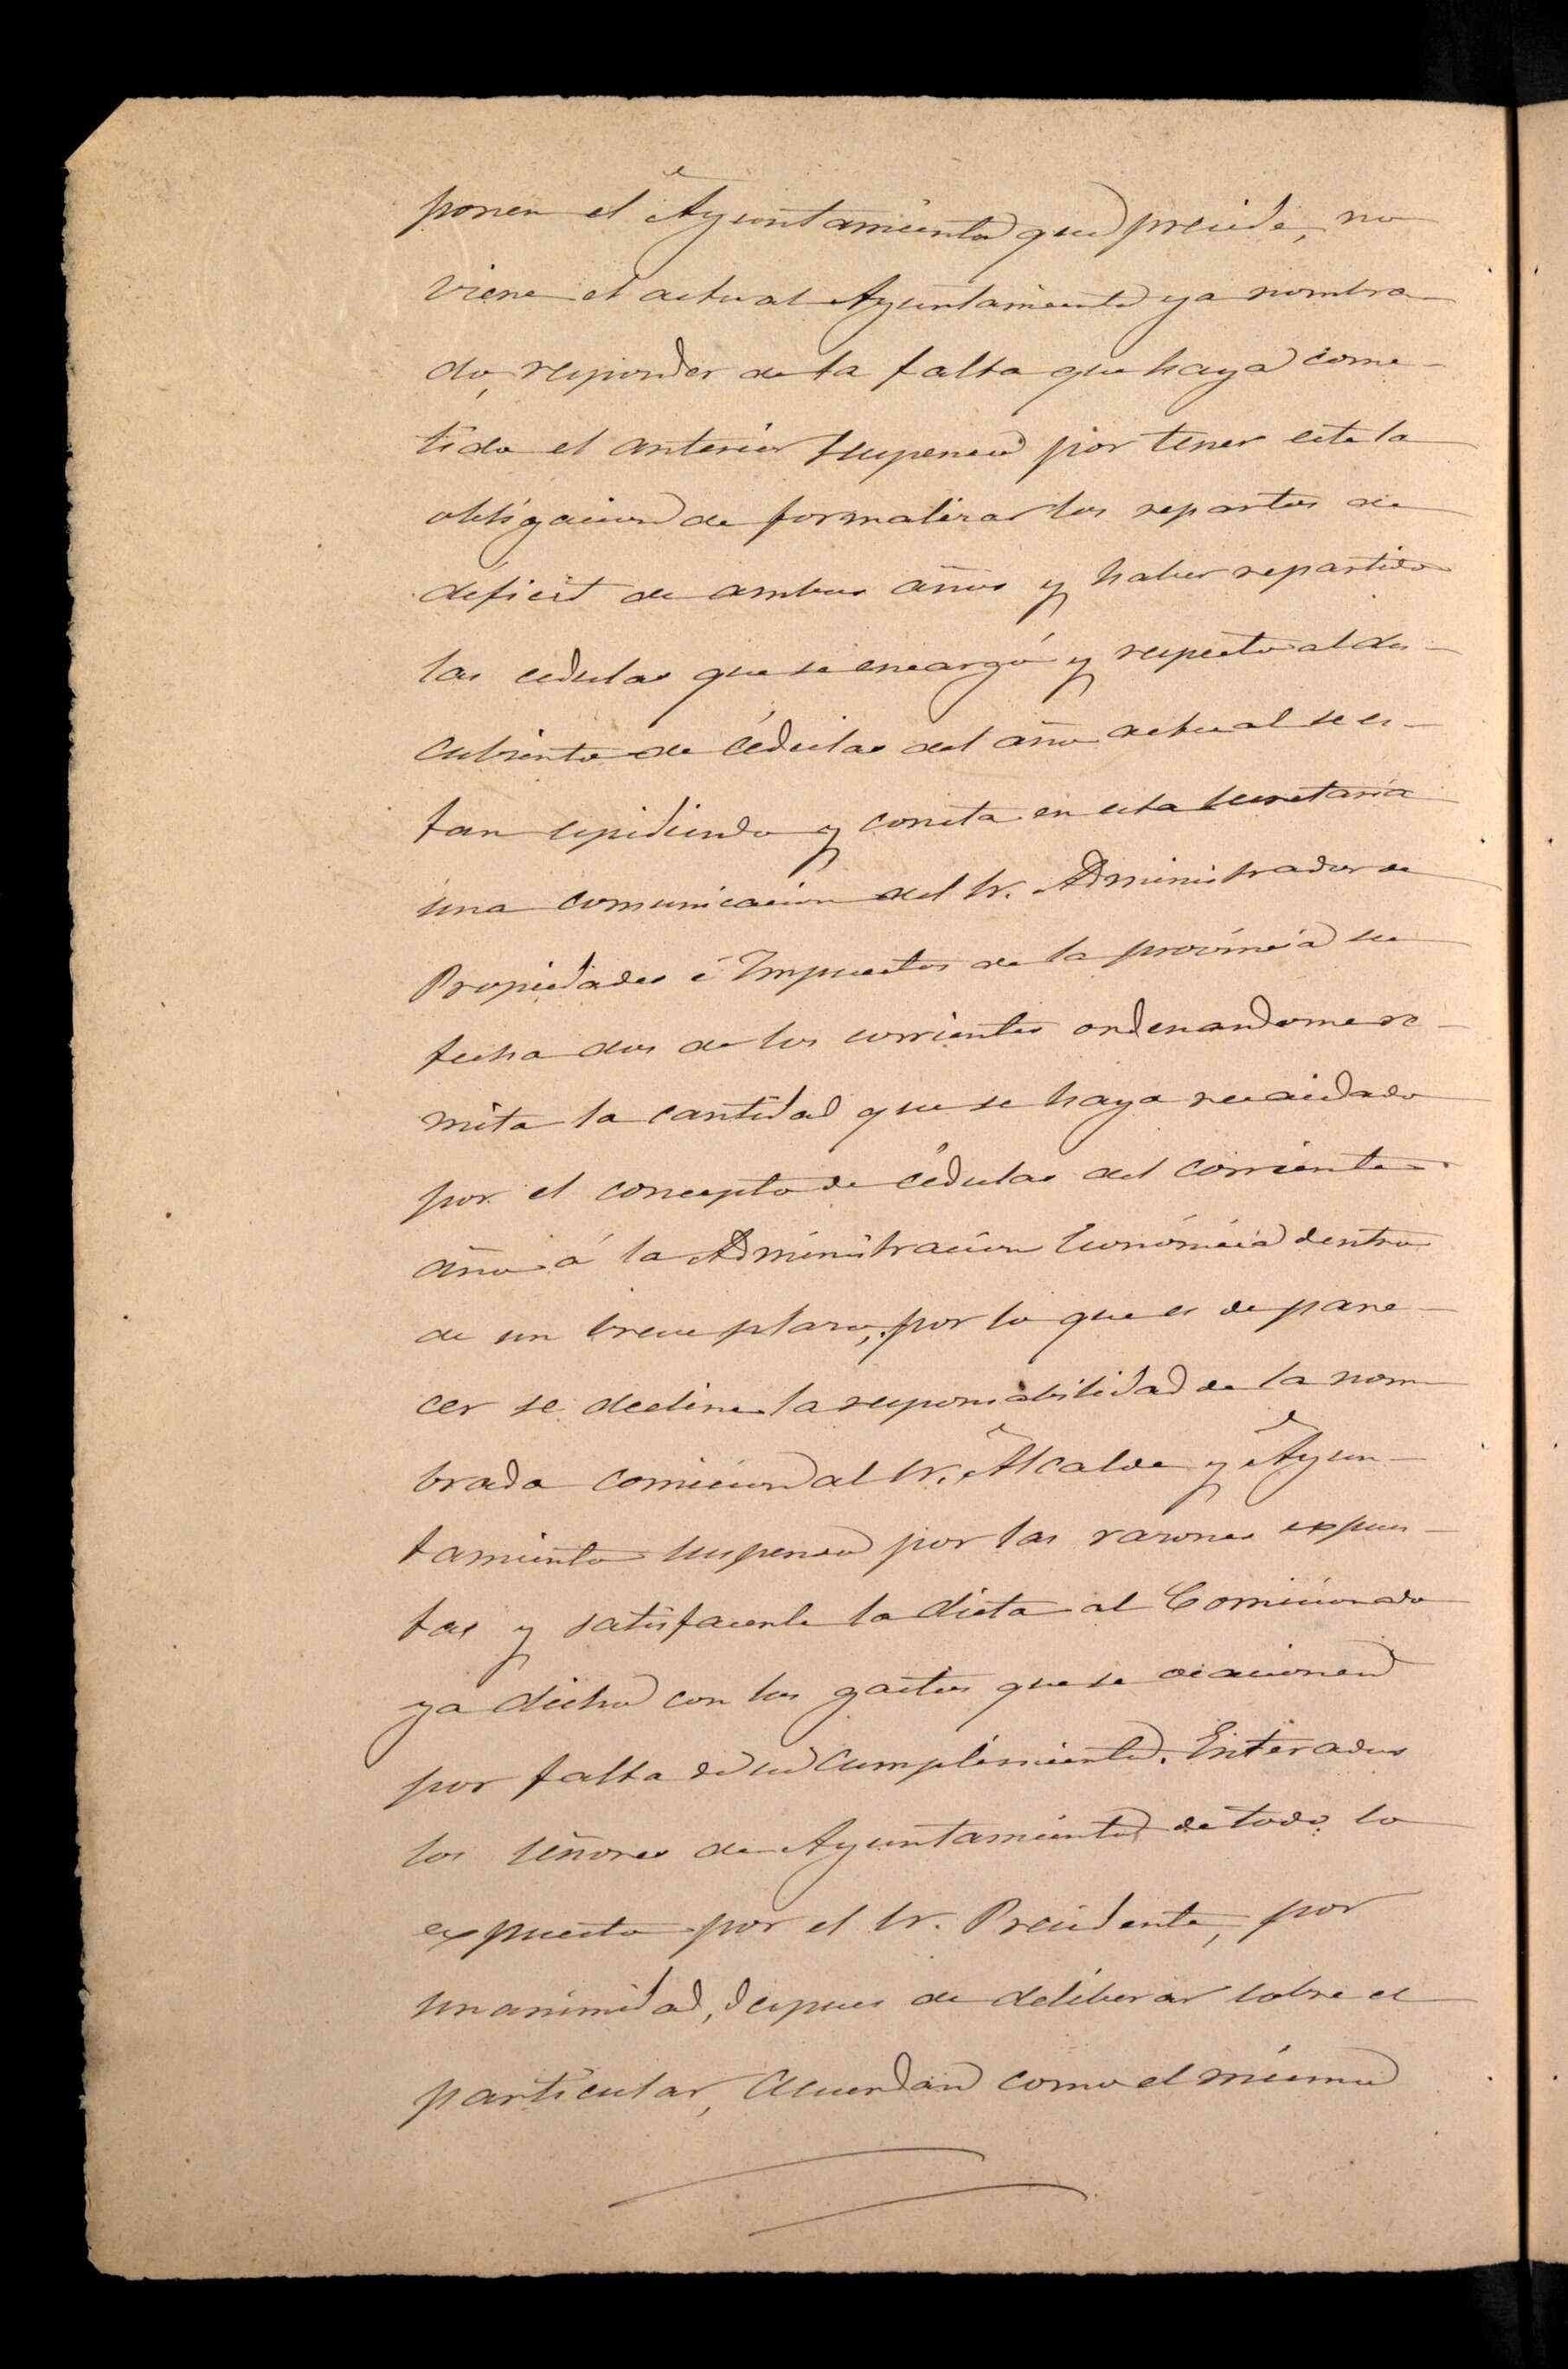 ponen el Ayuntamiento que preside, no
viene el actual Ayuntamiento ya nombra-
do, responder de la falta que haya come-
tido el anterior suspenso por tener este la
obligacion de formalizar los repartos de
déficit de ambos años y haber repartido
las cedulas que se encargó y respecto al des-
cubierto de cédulas del año actual se es-
tan espidiendo y consta en esta secretaría
una comunicacion del Sr. Administrador de
Propiedades é Impuestos de la provincia su
fecha dos de los corrientes ordenandome re-
mita la cantidad que se haya recaudado
por el concepto de cédulas del corriente
año á la Administracion Económica dentro
de un breve plazo, por lo que es de pare-
cer se decline la responsabilidad de la nom-
brada comision al Sr. Alcalde y Ayun-
tamiento suspenso por las razones espues-
tas y satisfacerle la dieta al Comisionado
ya dicho con los gastos que se ocasionen
por falta de su cumplimiento. Enterados
los señores de Ayuntamiento de todo lo
expuesto por el Sr. Presidente, por
unanimidad, despues de deliberar sobre el
particular, acuerdan como el mismo